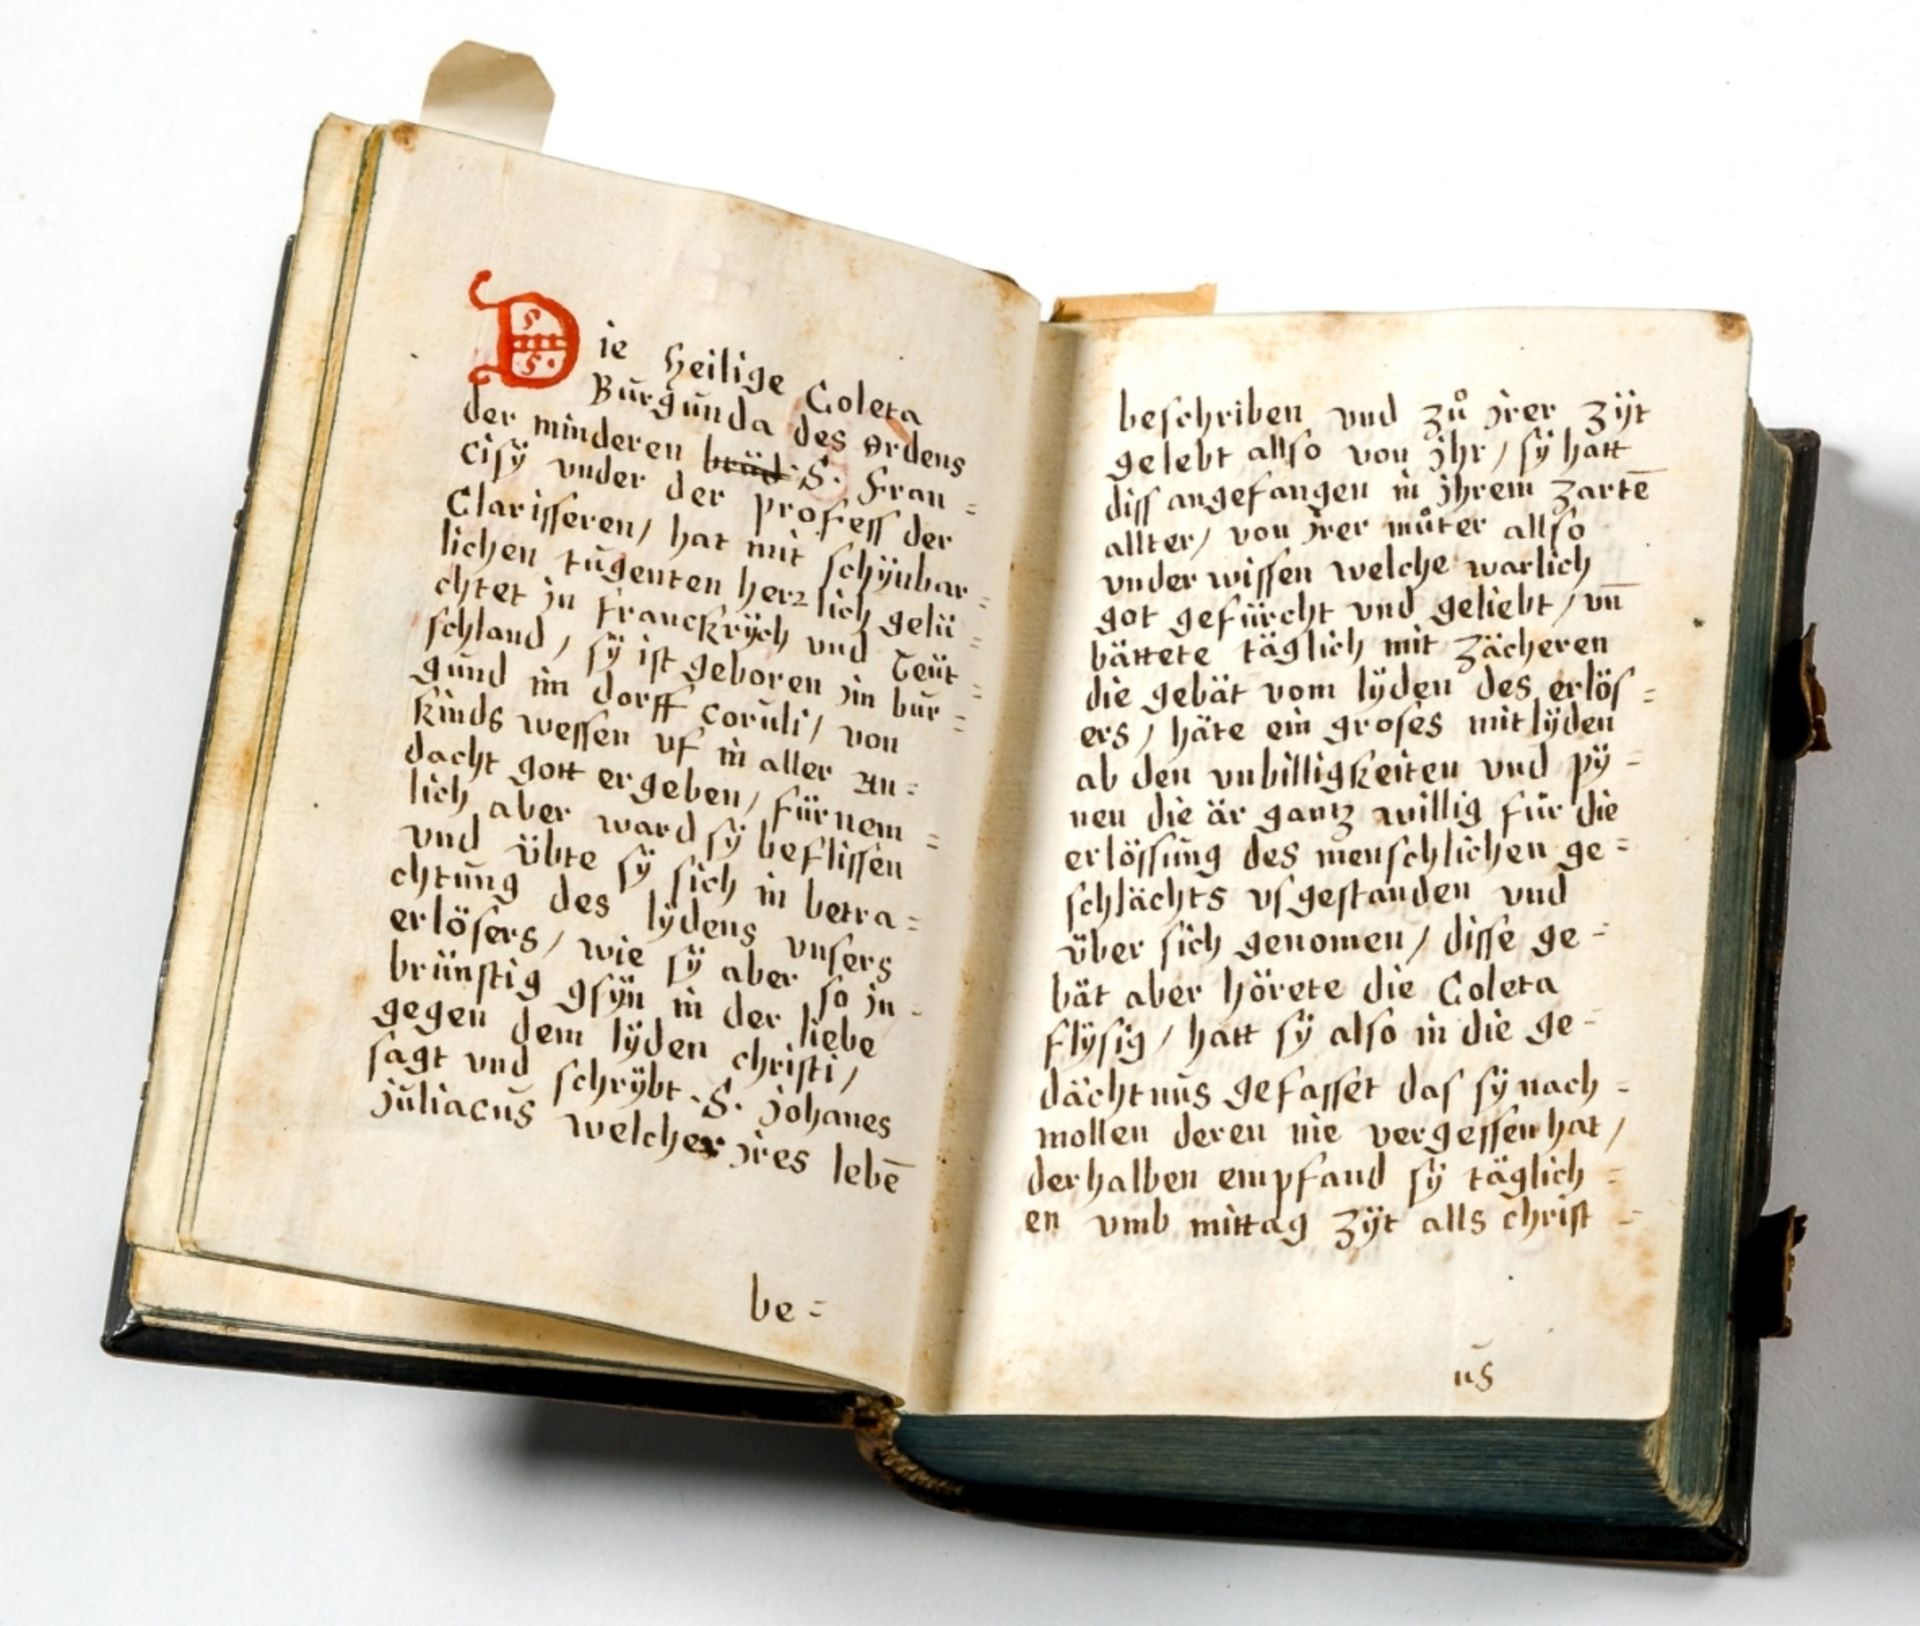 Die heilige Coleta
Burgunda des Ordens
der minderen brüd S. Fran=
cisÿ vnder der profess der
Clarisseren/ hat mit schÿnbar=
lichen tugenten herzlich gelü=
chtet in franckrÿch vnd Teüt=
schland, sÿ ist geboren in bur=
gund im dorff coruli/ von
kinds wessen vf in aller an=
dacht gott ergeben/ fürnem=
lich aber ward sÿ beflissen
vnd übte sÿ sich in betra=
chtung des lÿdens vnsers
erlösers/ wie sÿ aber so in=
brünstig gsÿn in der liebe
gegen dem lÿden christi/
sagt vnd schrÿbt .S. johanes
juliacus welcher jres lebē
be=
beschriben vnd zů jrer zÿt
gelebt allso von jhr/ sÿ hatt
diss angefangen in jhrem zartē
allter/ von jrer můter allso
vnderwissen welche warlich
got gefürcht vnd geliebt/ vn̄
bättete täglich mit zächeren
die gebät vom lÿden des erlös=
ers/ häte ein groses mitlÿden
ab den vnbilligkeiten vnd pÿ=
nen die är gantz willig für die
erlössung des menschlichen ge=
schlächts vsgestanden vnd
über sich genomen/ disse ge=
bät aber hörete die Coleta
flÿsig/ hatt sÿ also in die ge=
dächtnus gefasset das sÿ nach=
mollen deren nie vergessen hat/
derhalben empfand sÿ täglich=
en vmb mittag zÿt alls christ=
us